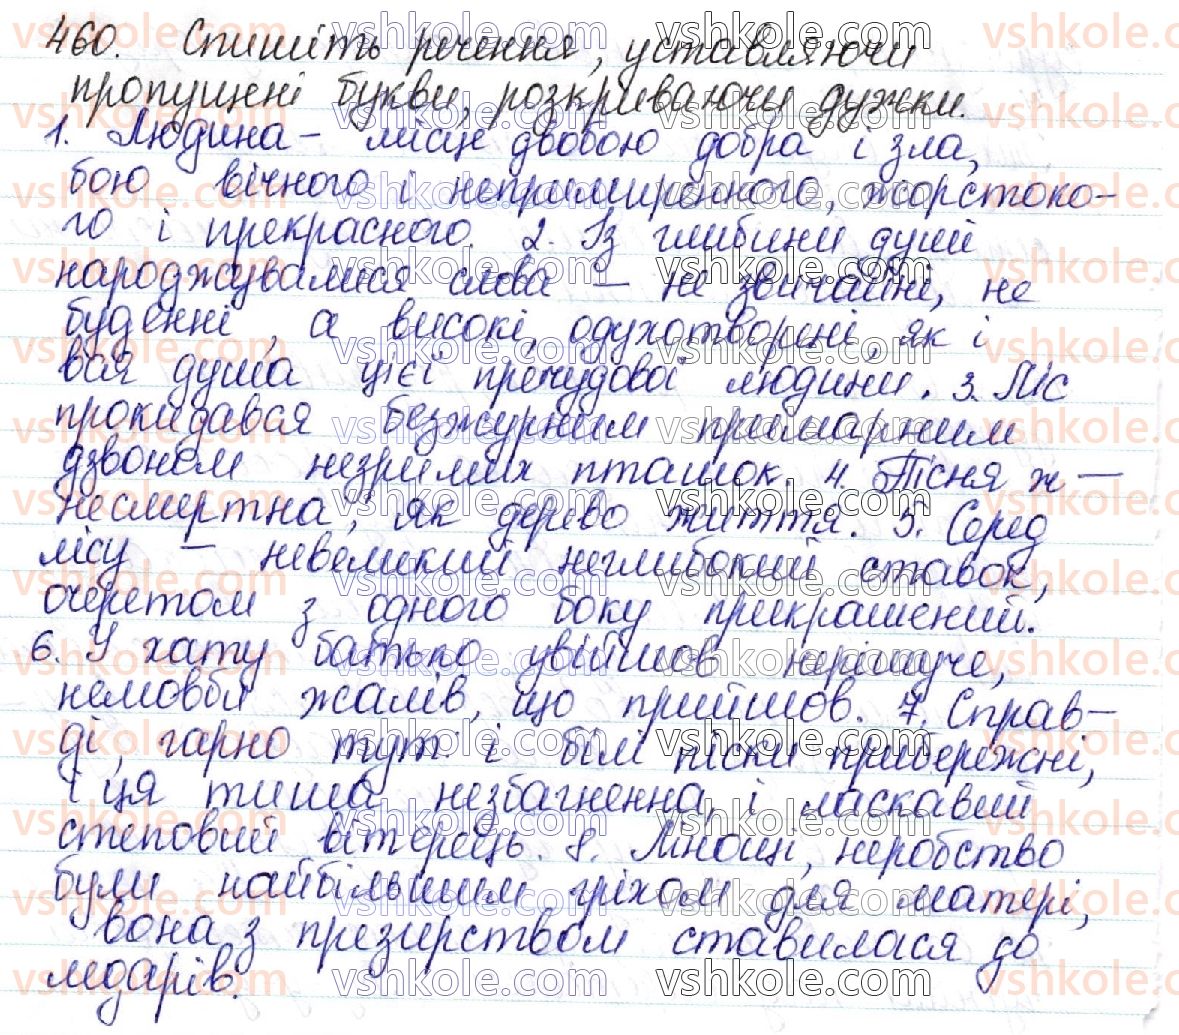 460. Спишіть речення, уставляючи
пропущені букви, розкриваючи дужки.
1. Людина – місце двобою добра і зла,
бою вічного і непримиренного, жорстоко-
го і прекрасного. 2. Із глибини душі
народжувалися слова – не звичайні, не
буденні, а високі, одухотворені, як і
вся душа цієї пречудової людини. 3. Ліс
прокидався безжурним примарним
дзвоном незримих пташок. 4. Пісня ж –
несмертна, як дерево життя. 5. Серед
лісу – невеликий неглибокий ставок,
очеретом з одного боку прикрашений.
6. У хату батько увійшов нерішуче,
немовби жалів, що прийшов. 7. Справ-
ді, гарно тут і білі піски прибережні,
і ця тиша незбагненна, і ласкавий
степовий вітерець. 8. Лінощі, неробство
були найбільшим гріхом для матері,
вона з презирством ставилася до
ледарів.